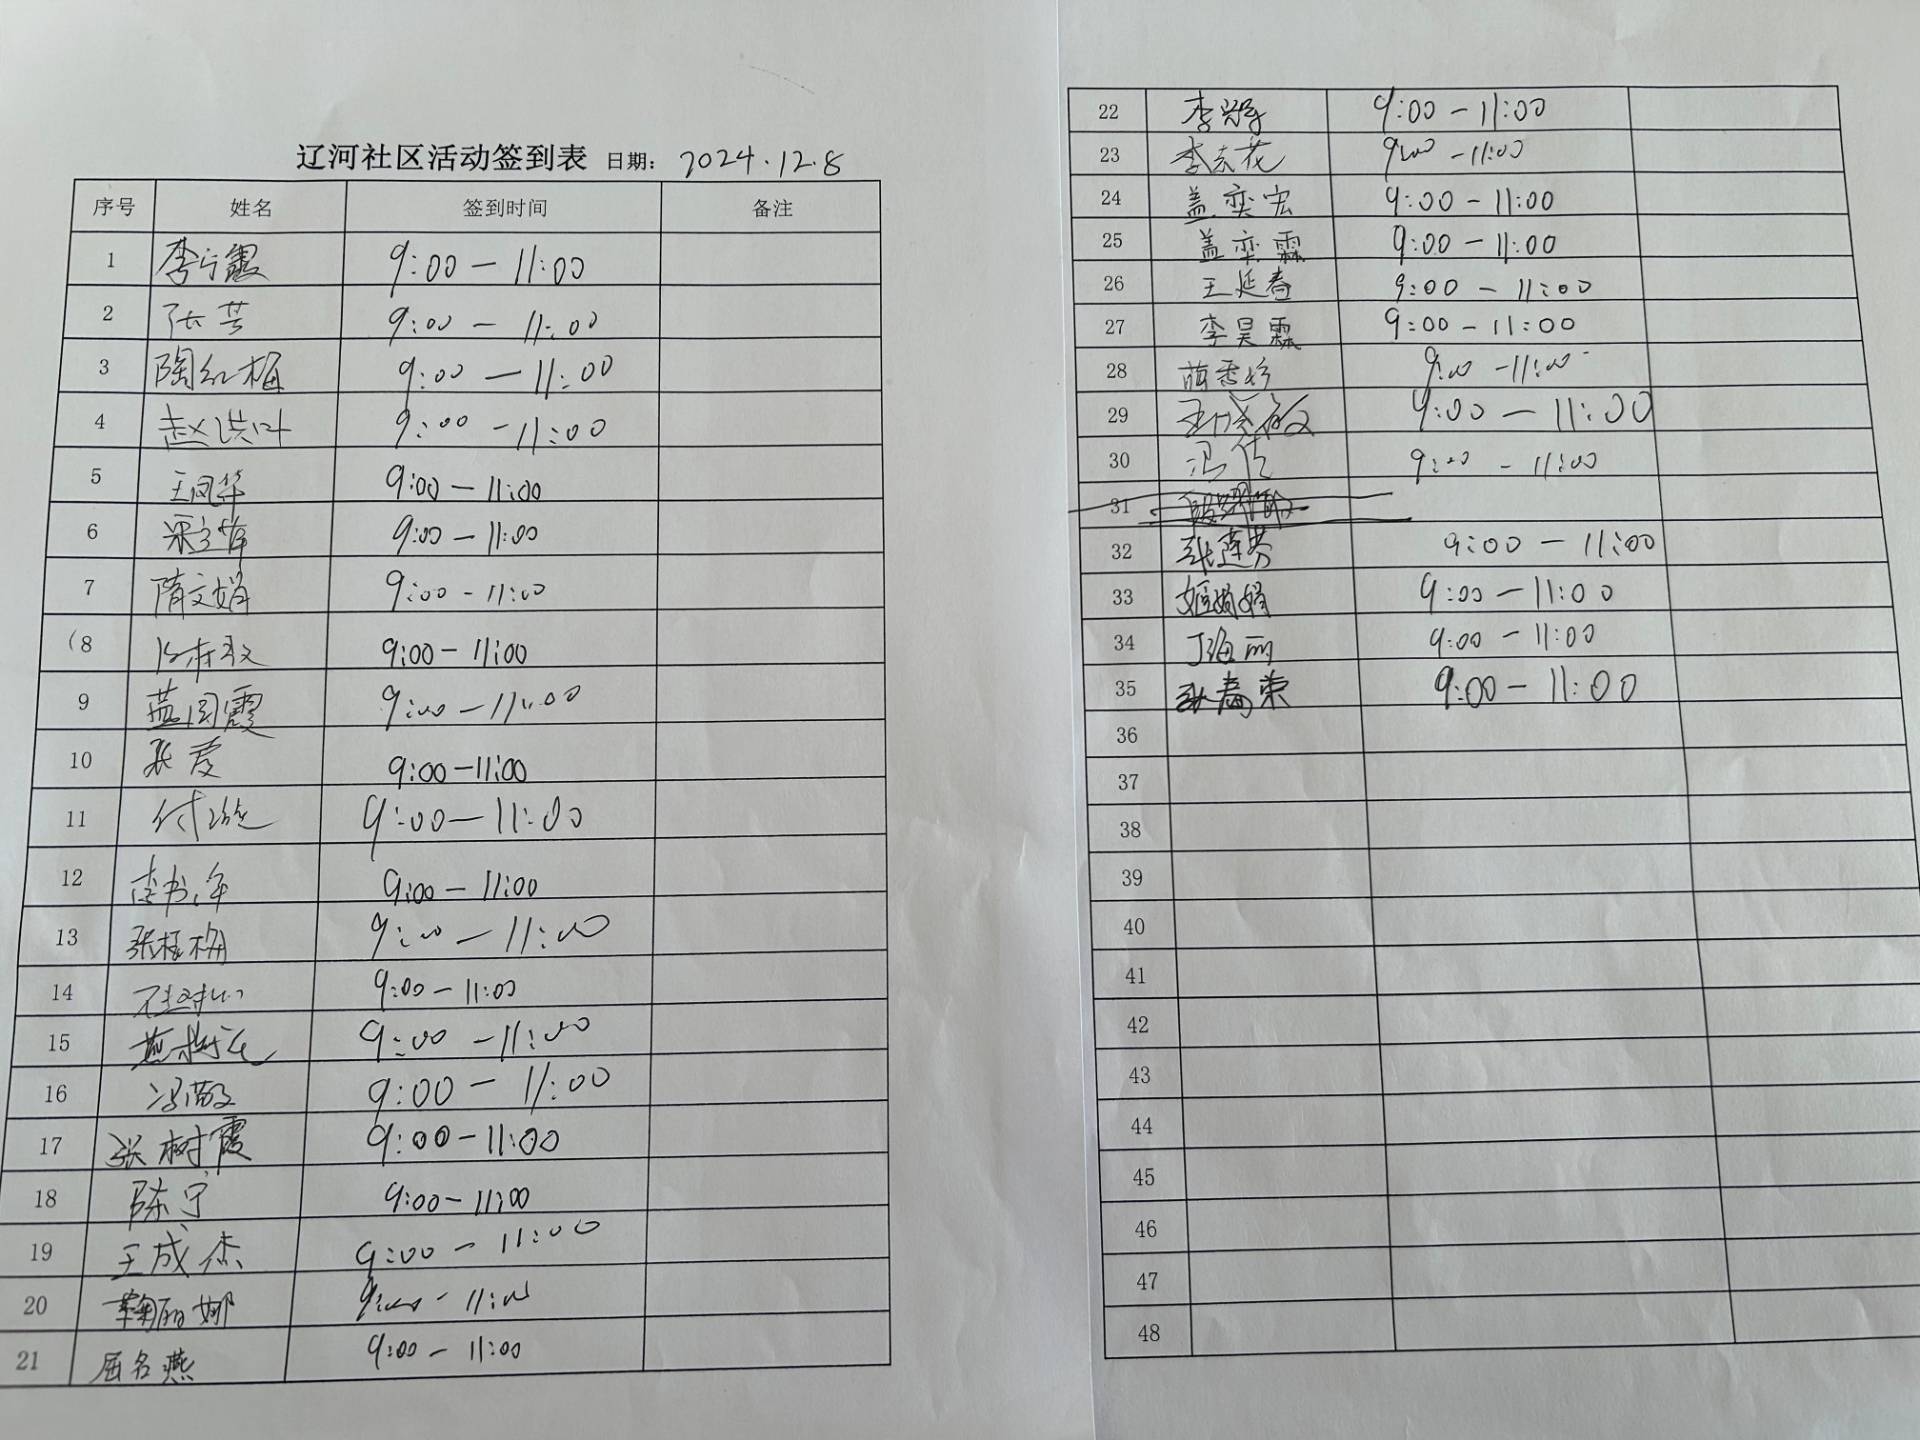 辽河社区活动签到表 日期： 2024.12.8
序号 姓名 签到时间 备注
1 李宁霞 9:00-11:00
2 张芳 9:00-11:00
3 陶红梅 9:00-11:00
4 赵洪叶 9:00-11:00
5 王凤华 9:00-11:00
6 9:00-11:00
7 隋文娟 9:00-11:00
8 9:00-11:00
9 蓝国霞 9:00-11:00
10 张爱 9:00-11:00
11 9:00-11:00
12 9:00-11:00
13 张桂梅 9:00-11:00
14 9:00-11:00
15 9:00-11:00
16 9:00-11:00
17 张树霞 9:00-11:00
18 陈宁 9:00-11:00
19 王成杰 9:00-11:00
20 鞠丽娜 9:00-11:00
21 屈名燕 9:00-11:00
22 9:00-11:00
23 9:00-11:00
24 盖奕宏 9:00-11:00
25 盖奕霖 9:00-11:00
26 王延春 9:00-11:00
27 李昊霖 9:00-11:00
28 9:00-11:00
29 9:00-11:00
30 9:00-11:00
31
32 张莲芳 9:00-11:00
33 9:00-11:00
34 丁海丽 9:00-11:00
35 9:00-11:00
36
37
38
39
40
41
42
43
44
45
46
47
48